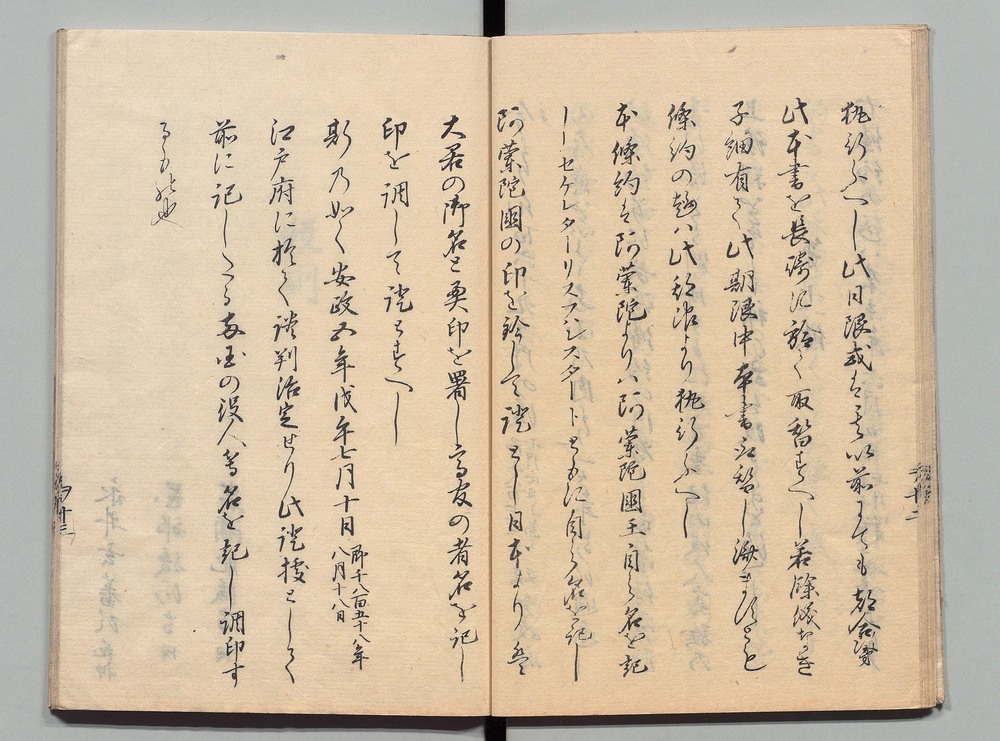 執行ふへし此日限或は其以前にても都合次第
此本書を長崎に於て取替すへし若餘儀なき
子細有て此期限中本書取替し済すとも
條約の趣ハ此期限より執行ふへし
本條約は阿蘭陀よりハ阿蘭陀國王自ら名を記
しセケレターリスフンスタートともに自ら名を記し
阿蘭陀國の印を鈐して證とし日本より
大君の御名と奥印を署し高官の者名を記し
印を調して證とすへし
斯乃如く安政五年戊午七月十日 即千八百五十八年八月十八日
江戸府に於て談判治定せり此證據として
前に記したる両国の役人等名を記し調印す
るもの也